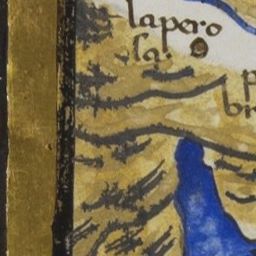 lapero
la.
p
bi